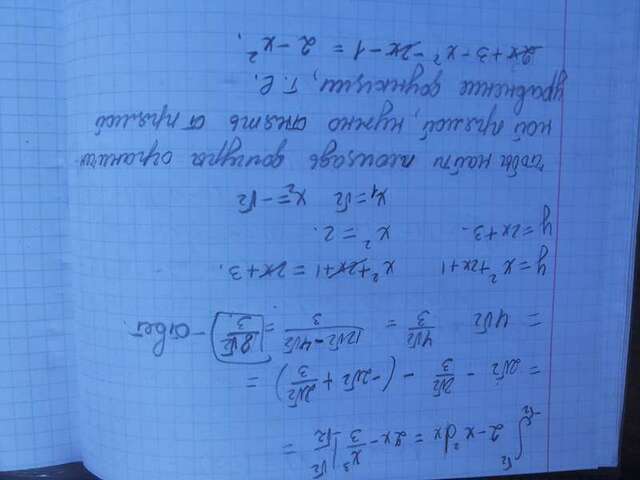 ∫_{-√2}^{√2} 2 - x² dx = 2x - x³/3 |_{-√2}^{√2} =
= 2√2 - 2√2/3 - (-2√2 + 2√2/3) =
= 4√2 4√2/3 = 12√2 - 4√2/3 = 8√2/3 - ответ.
y = x² + 2x + 1 x² + 2x + 1 = 2x + 3.
y = 2x + 3. x² = 2.
x₁ = √2 x₂ = -√2
чтобы найти площадь фигуры ограничен-
ной прямой, нужно отнять от прямой
уравнение функции, т.е.
2x + 3 - x² - 2x - 1 = 2 - x².